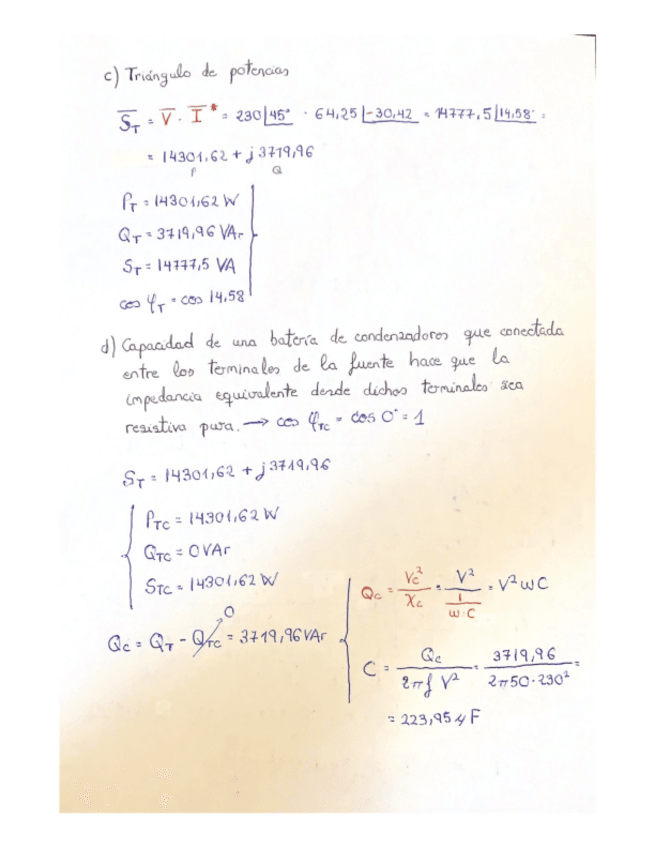 c) Triángulo de potencias
S̅T = V̅ · I̅* = 230∠45° · 64,25∠-30,42 = 14777,5∠14,58° =
= 14301,62 + j3719,96
P Q
PT = 14301,62 W
QT = 3719,96 VAr
ST = 14777,5 VA
cos φT = cos 14,58
d) Capacidad de una batería de condenzadores que conectada
entre los terminales de la fuente hace que la
impedancia equivalente desde dichos terminales sea
resistiva pura. → cos φTC = cos 0° = 1
ST = 14301,62 + j3719,96
PTC = 14301,62 W
QTC = 0 VAr
STC = 14301,62 W
QC = QT - QTC = 3719,96 VAr
0
QC = VC²/XC = V²/(1/(ω·C)) = V²ωC
C = QC/(2πf V²) = 3719,96/(2π50·230²) =
= 223,95 μF